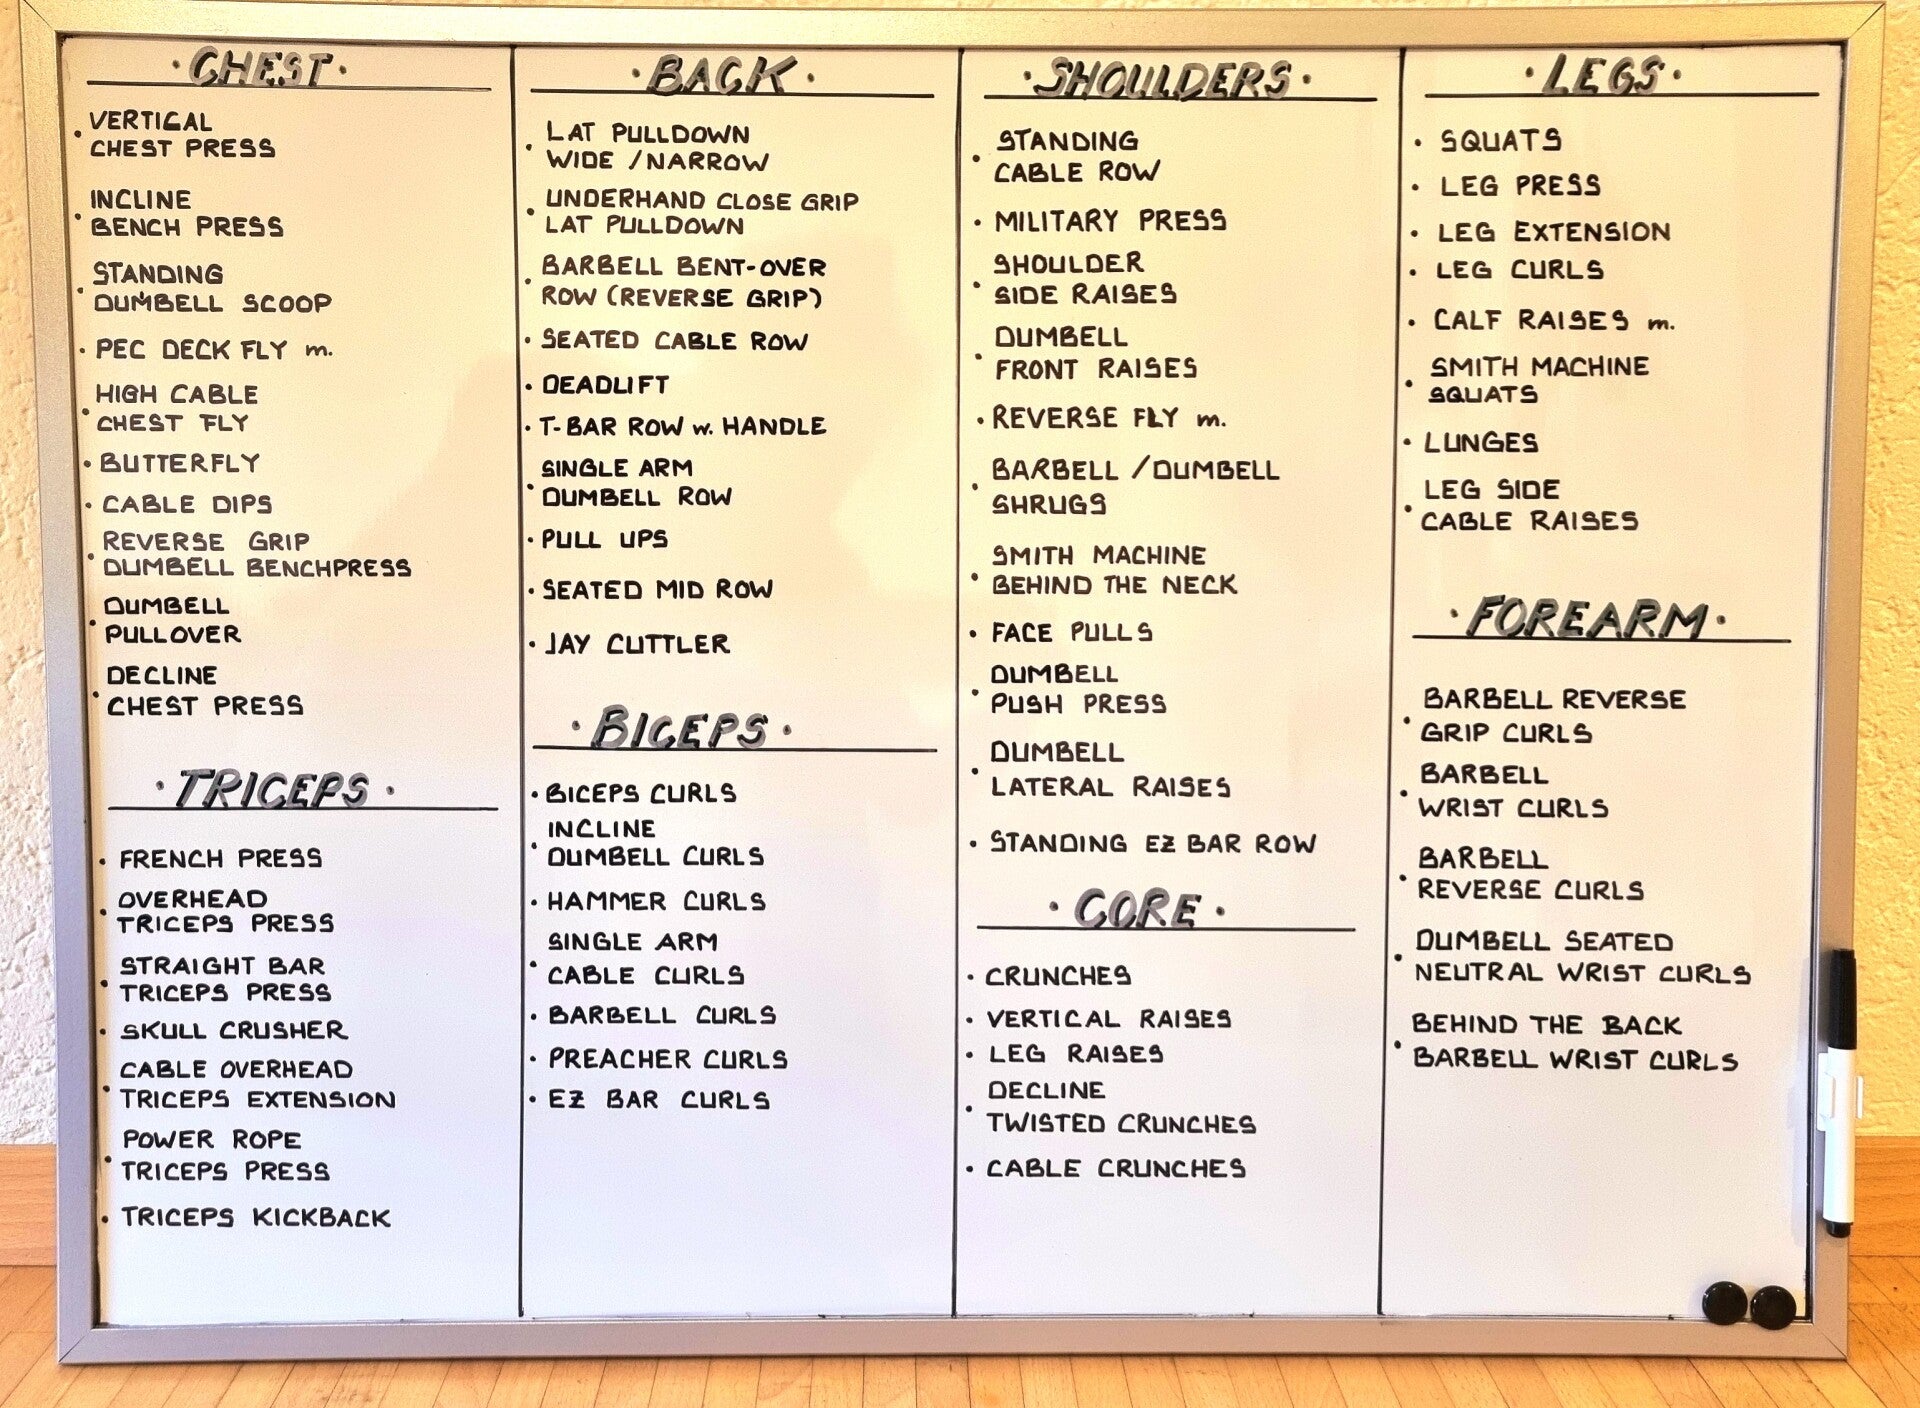 · CHEST ·
· VERTICAL
CHEST PRESS
· INCLINE
BENCH PRESS
· STANDING
DUMBELL SCOOP
· PEC DECK FLY m.
· HIGH CABLE
CHEST FLY
· BUTTERFLY
· CABLE DIPS
· REVERSE GRIP
DUMBELL BENCHPRESS
· DUMBELL
PULLOVER
· DECLINE
CHEST PRESS
· TRICEPS ·
· FRENCH PRESS
· OVERHEAD
TRICEPS PRESS
· STRAIGHT BAR
TRICEPS PRESS
· SKULL CRUSHER
· CABLE OVERHEAD
TRICEPS EXTENSION
· POWER ROPE
TRICEPS PRESS
· TRICEPS KICKBACK
· BACK ·
· LAT PULLDOWN
WIDE / NARROW
· UNDERHAND CLOSE GRIP
LAT PULLDOWN
· BARBELL BENT-OVER
ROW (REVERSE GRIP)
· SEATED CABLE ROW
· DEADLIFT
· T-BAR ROW w. HANDLE
· SINGLE ARM
DUMBELL ROW
· PULL UPS
· SEATED MID ROW
· JAY CUTTLER
· BICEPS ·
· BICEPS CURLS
· INCLINE
DUMBELL CURLS
· HAMMER CURLS
· SINGLE ARM
CABLE CURLS
· BARBELL CURLS
· PREACHER CURLS
· EZ BAR CURLS
· SHOULDERS ·
· STANDING
CABLE ROW
· MILITARY PRESS
· SHOULDER
SIDE RAISES
· DUMBELL
FRONT RAISES
· REVERSE FLY m.
· BARBELL / DUMBELL
SHRUGS
· SMITH MACHINE
BEHIND THE NECK
· FACE PULLS
· DUMBELL
PUSH PRESS
· DUMBELL
LATERAL RAISES
· STANDING EZ BAR ROW
· CORE ·
· CRUNCHES
· VERTICAL RAISES
· LEG RAISES
· DECLINE
TWISTED CRUNCHES
· CABLE CRUNCHES
· LEGS ·
· SQUATS
· LEG PRESS
· LEG EXTENSION
· LEG CURLS
· CALF RAISES m.
· SMITH MACHINE
SQUATS
· LUNGES
· LEG SIDE
CABLE RAISES
· FOREARM ·
· BARBELL REVERSE
GRIP CURLS
· BARBELL
WRIST CURLS
· BARBELL
REVERSE CURLS
· DUMBELL SEATED
NEUTRAL WRIST CURLS
· BEHIND THE BACK
BARBELL WRIST CURLS